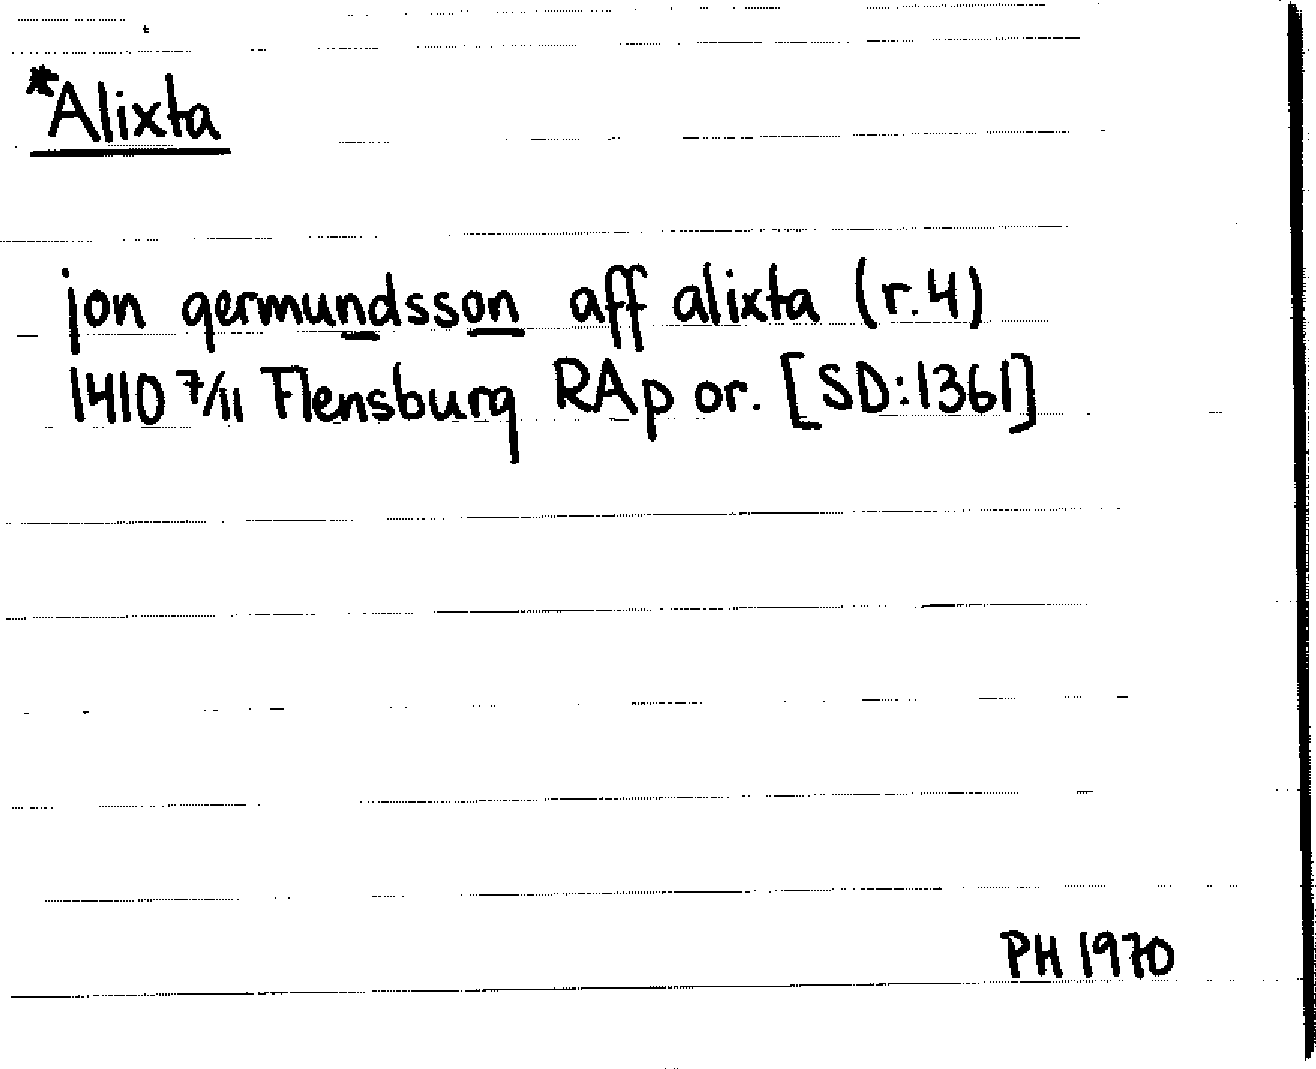 *Alixta
jon germundsson aff alixta (r.4)
1410 7/11 Flensburg RAp or. [SD:1361]
PH 1970